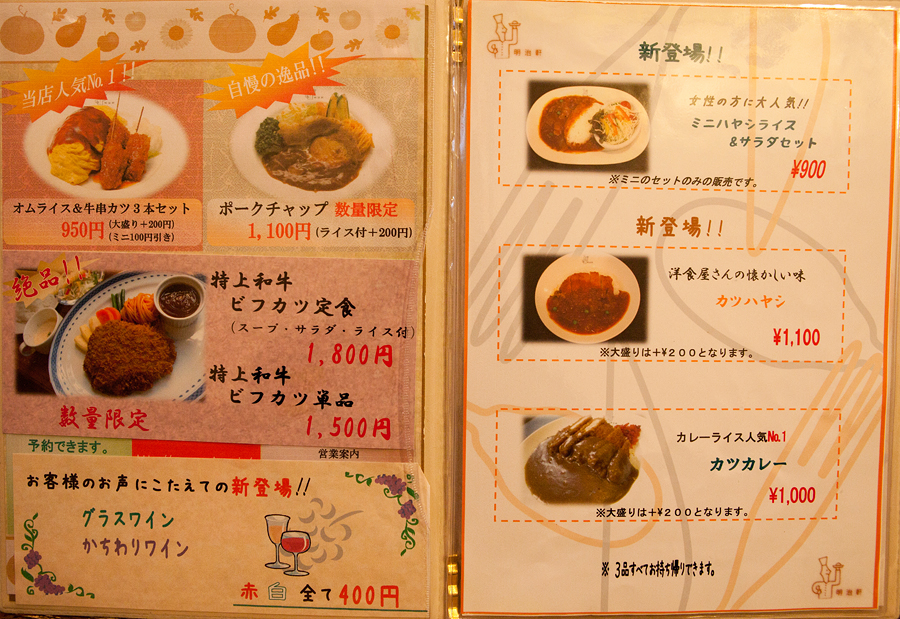 当店人気No.1!!
オムライス&牛串カツ3本セット
950円(大盛り+200円)
(ミニ100円引き)
自慢の逸品!!
ポークチャップ 数量限定
1,100円(ライス付+200円)
絶品!!
数量限定
特上和牛
ビフカツ定食
(スープ・サラダ・ライス付)
1,800円
特上和牛
ビフカツ単品
1,500円
予約できます。
営業案内
お客様のお声にこたえての新登場!!
グラスワイン
かちわりワイン
赤 白 全て400円
明治軒
新登場!!
女性の方に大人気!!
ミニハヤシライス
&サラダセット
¥900
※ミニのセットのみの販売です。
新登場!!
洋食屋さんの懐かしい味
カツハヤシ
¥1,100
※大盛りは+¥200となります。
カレーライス人気No.1
カツカレー
¥1,000
※大盛りは+¥200となります。
※ 3品すべてお持ち帰りできます。
明治軒